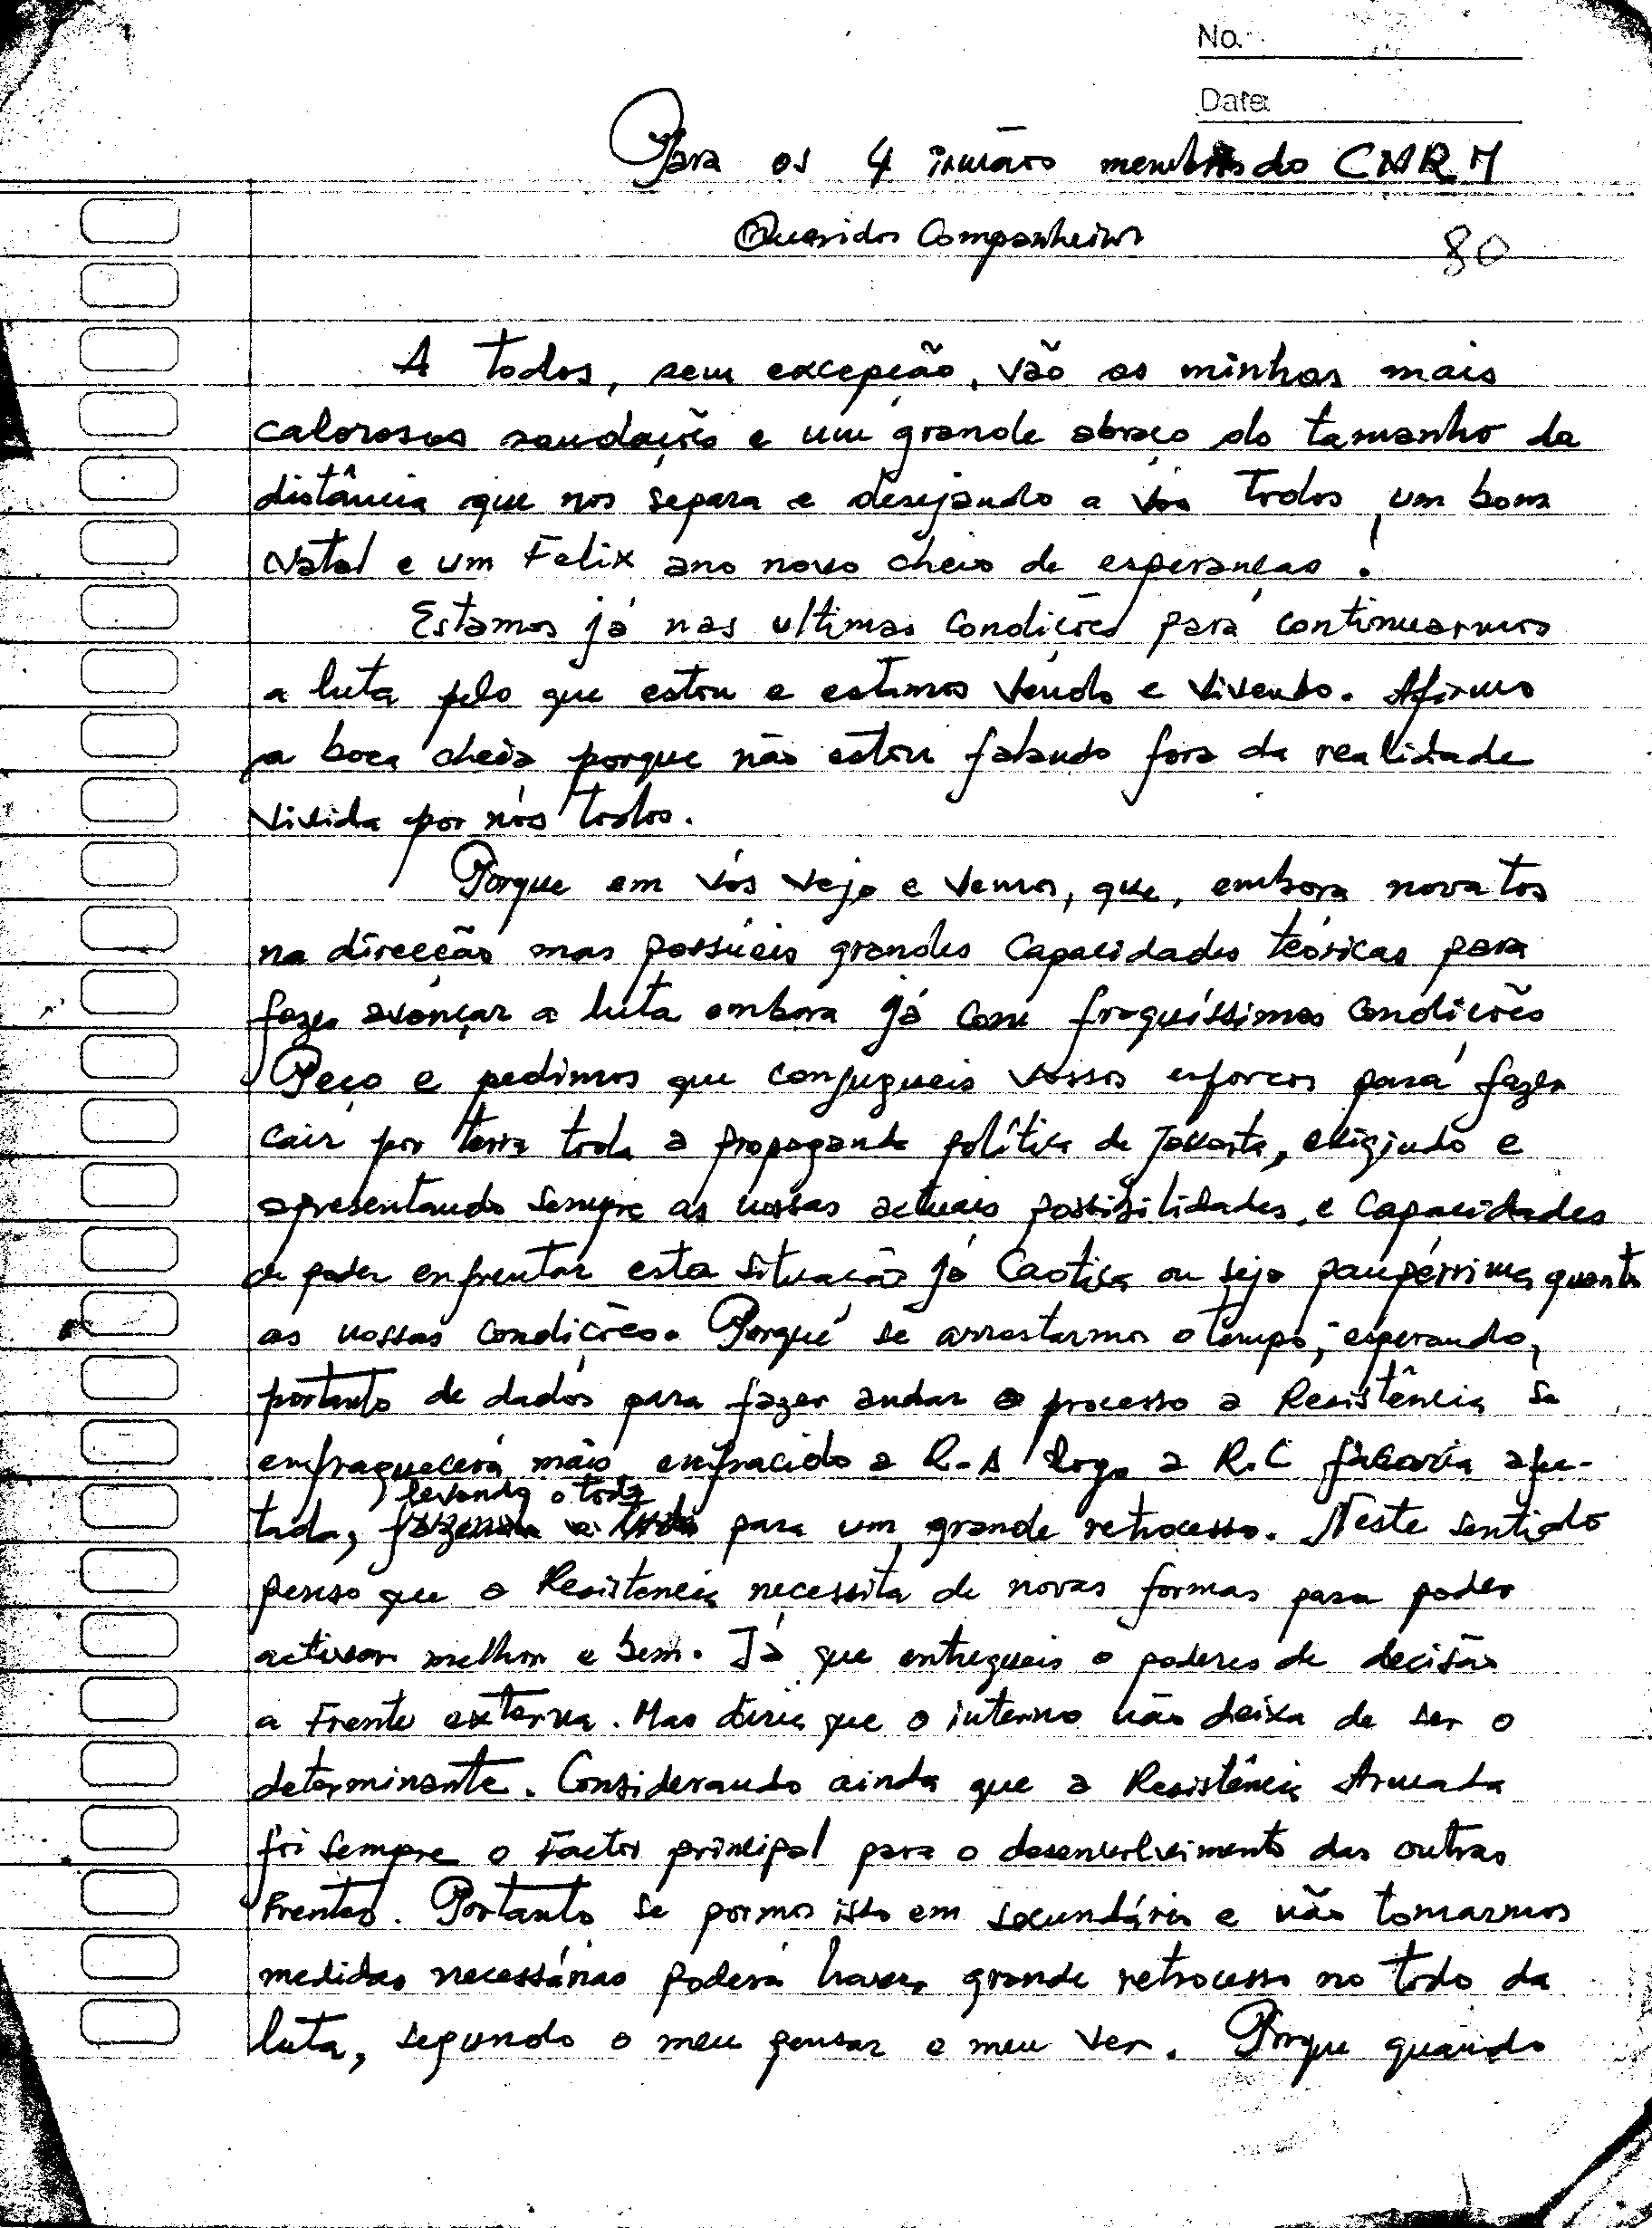 No.
Date:
Para os 4 irmãos membros do CNRM
Queridos Companheiros
80
A todos, sem excepção, vão as minhas mais
calorosas saudações e um grande abraço do tamanho da
distância que nos separa e desejando a vós todos, um bom
Natal e um Felix ano novo cheio de esperanças.
Estamos já nas ultimas condições para continuarmos
a luta pelo que estou e estamos vendo e vivendo. Afirmo
a boca cheia porque não estou falando fora da realidade
vivida por nós todos.
Porque em vós vejo e vemos, que, embora novatos
na direcção mas possúeis grandes capacidades teóricas para
fazer avançar a luta embora já com fraquíssimas condições
Peço e pedimos que conjugueis vossos esforços para fazer
cair por terra toda a propaganda política de Jakarta, exigindo e
apresentando sempre as nossas actuais possibilidades, e capacidades
de poder enfrentar esta situação já caotica ou seja paupérrima quanto
as nossas condições. Porque se arrastarmos o tempo, esperando,
portanto de dados para fazer andar o processo a Resistência se
enfraquecerá mais, enfracido a R.A logo a R.C ficaria afec-
levando o todo
tada, para um grande retrocesso. Neste sentido
penso que a Resistencia necessita de novas formas para poder
activar melhor e bem. Já que entregueis o poderes de decisão
a Frente externa. Mas diria que o interno não deixa de ser o
determinante. Considerando ainda que a Resistência Armada
foi sempre o Factor principal para o desenvolvimento das outras
Frentes. Portanto se pormos isto em secundário e não tomarmos
medidas necessárias poderá haver grande retrocesso no todo da
luta, segundo o meu pensar e meu ver. Porque quando